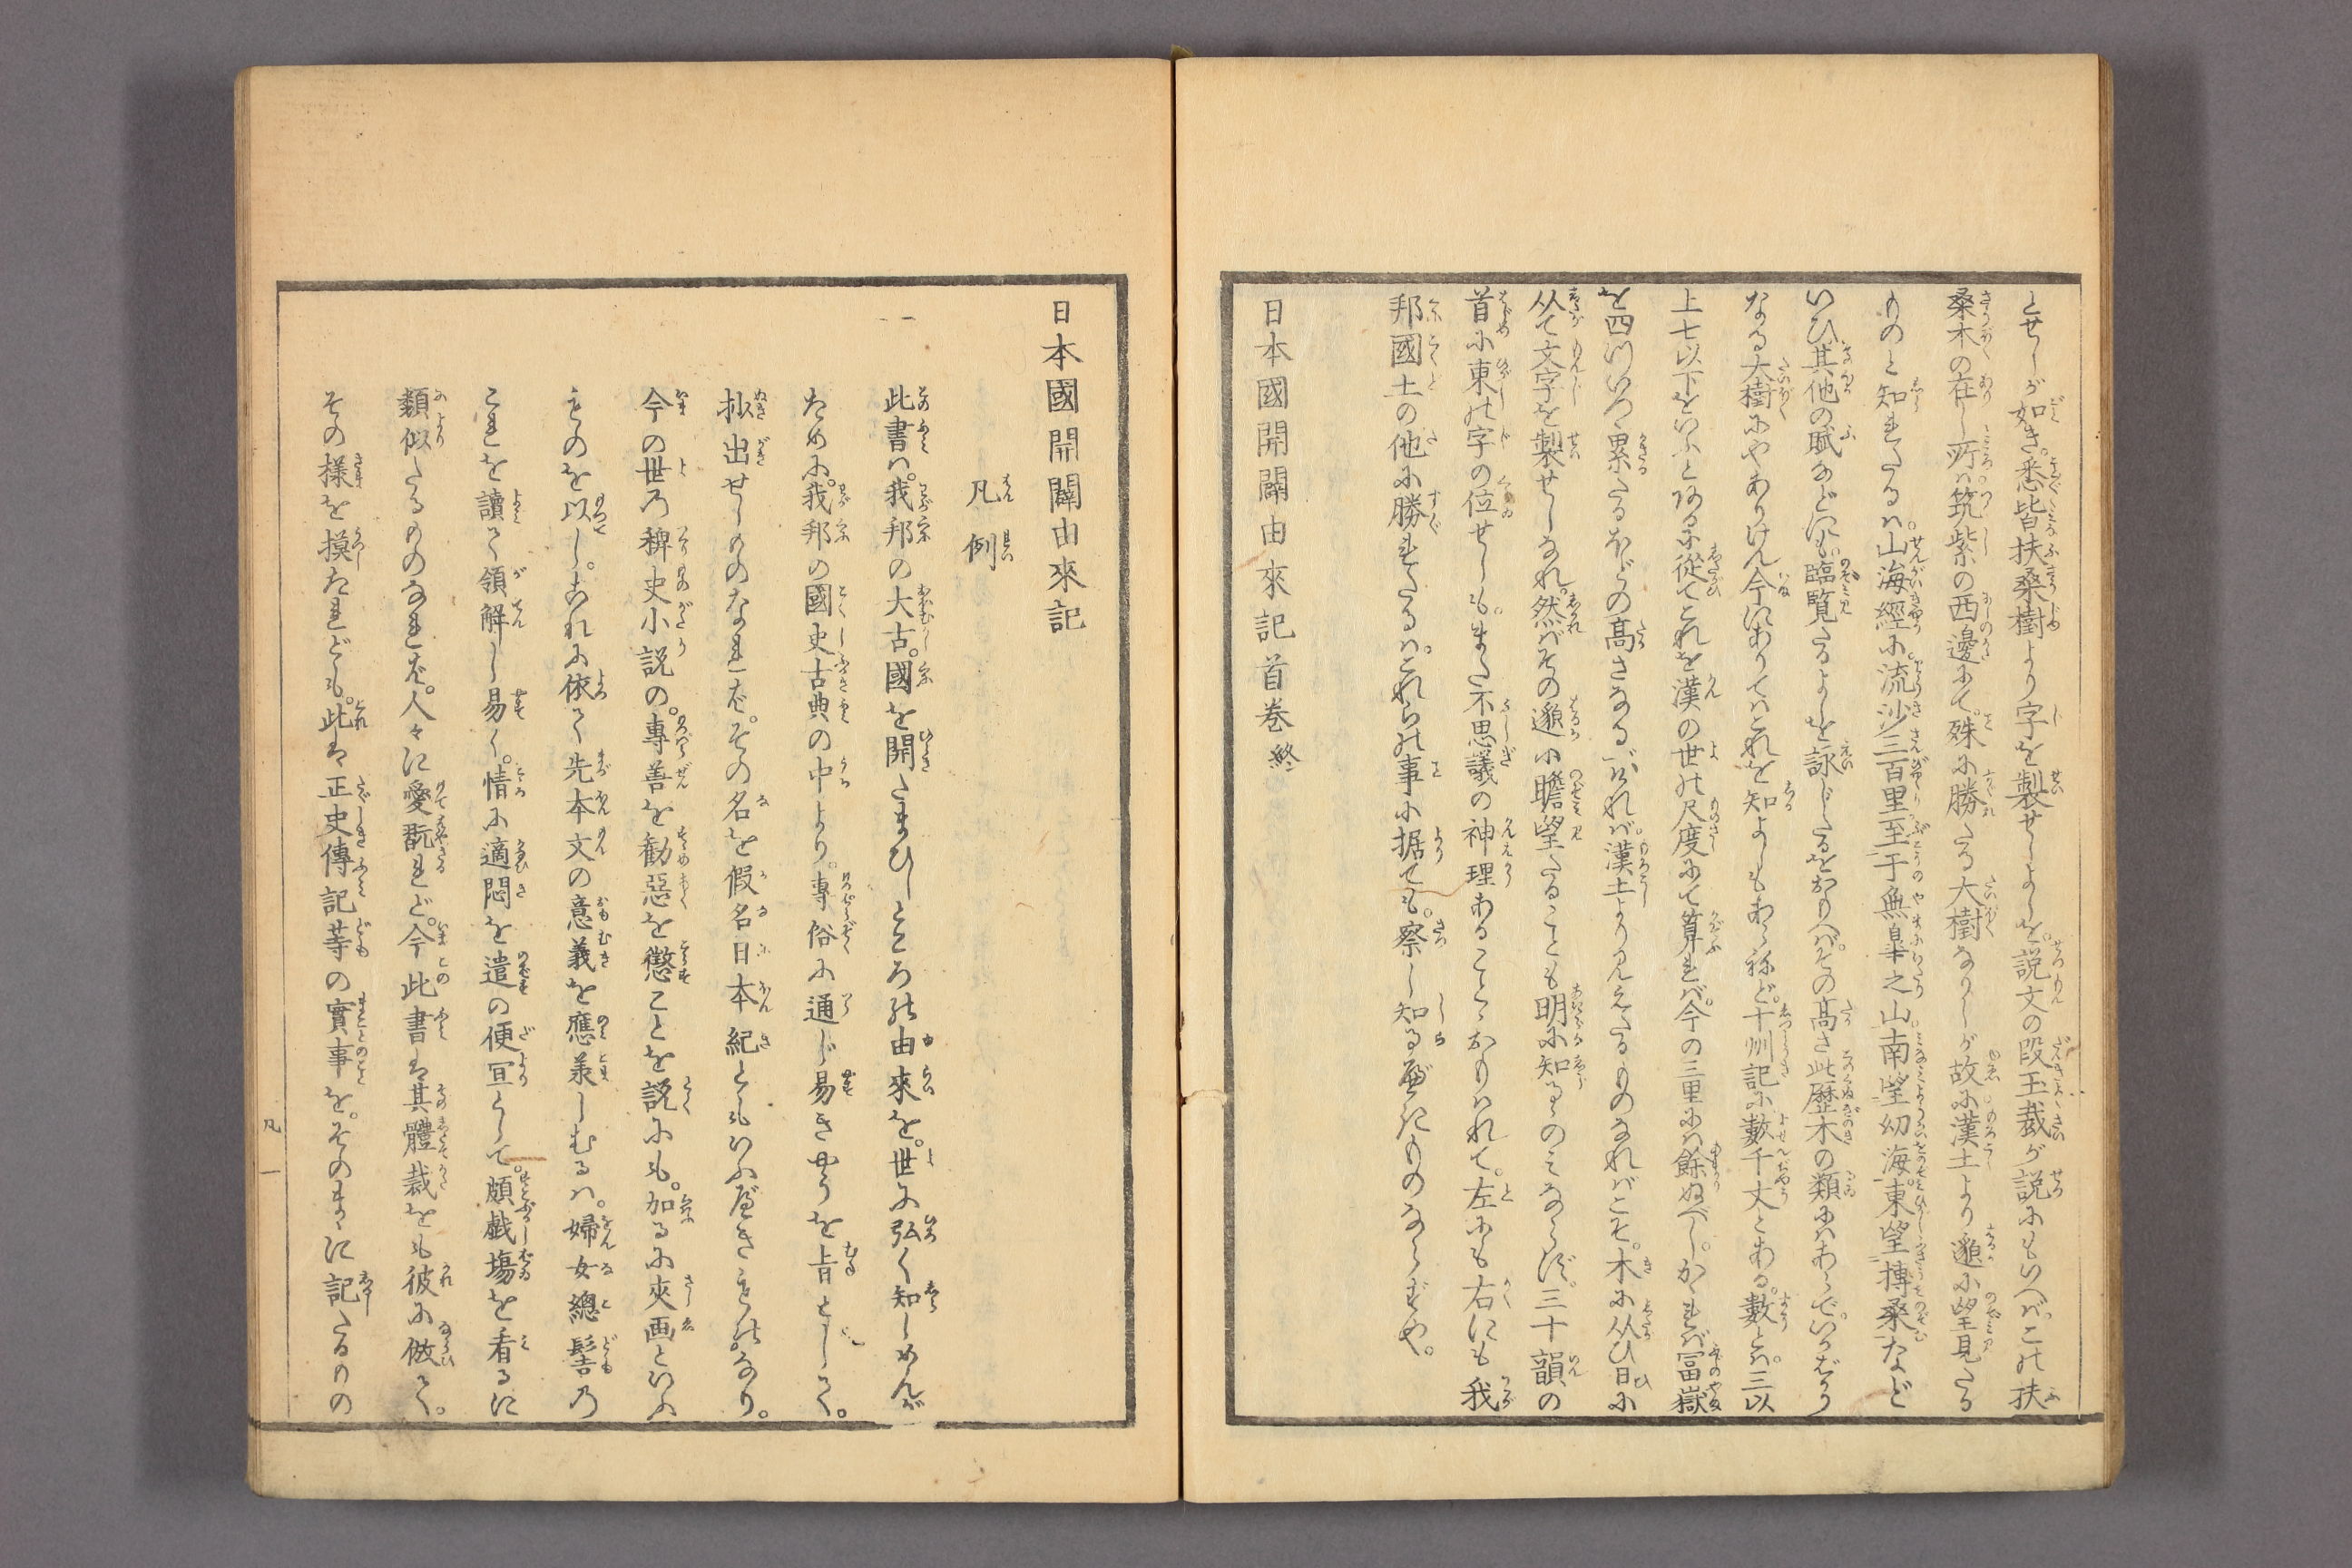 とせしが如き。悉皆扶桑樹より字を製せしよしを。説文の段玉裁が説にもいへば。この扶
桑木の在し所ハ。筑紫の西邊にて。殊に勝たる大樹なりしが故に漢土より遥に望見たる
ものと知れたるハ。山海經に。流沙三百里至于無皐之山南望幼海。東望榑桑など
いひ。其他の賦などにも。臨覧たるよしを詠じたるをおもへば。その高さ此歴木の類にハあらで。いかばかり
なる大樹にやありけん今にありてハこれを知よしもあらねど。十州記に數千丈とある。數とハ。三以
上七以下をいふとあるに從てこれを漢の世の尺度にて算れば。今の三里にハ餘ぬべし。かゝれば冨嶽
を四ツいつ累たるほどの高さなるべければ。漢土より見えたるものなれバこそ。木に从ひ日に
从て文字を製せしなれ。然ばその遥に瞻望たることも明に知るゝのミならず。三十韻の
首に東の字の位せしも。また不思議の神理あることゝおもハれて。左にも右にも我
邦國土の他に勝れたるハ。これらの事に据ても。察し知るべきものならずや。
日本國開闢由來記首巻終
日本國開闢由來記
凡例
一 此書ハ。我邦の大古。國を開たまひしところの由來を。世に弘く知しめんが
ために。我邦の國史古典の中より。專俗に通じ易きやうを旨としく。
抄出せしものなれど。その名を假名日本紀としもいふべきものなり。
今の世の稗史小説の。專善を勧惡を懲ことを説にも。加るに夾画といふ
ものを以し。これに依て先本文の意義を應兼しむるハ。婦女總髻の
これを讀て領解し易く。情に適悶を遣の便宜として。頗戯塲を看るに
類似たるものなれど。人々に愛翫れど。今此書は其體裁をも彼に倣て。
その様を摸たれども。此は正史傳記等の實事を。そのまゝに記たるもの
凡 一